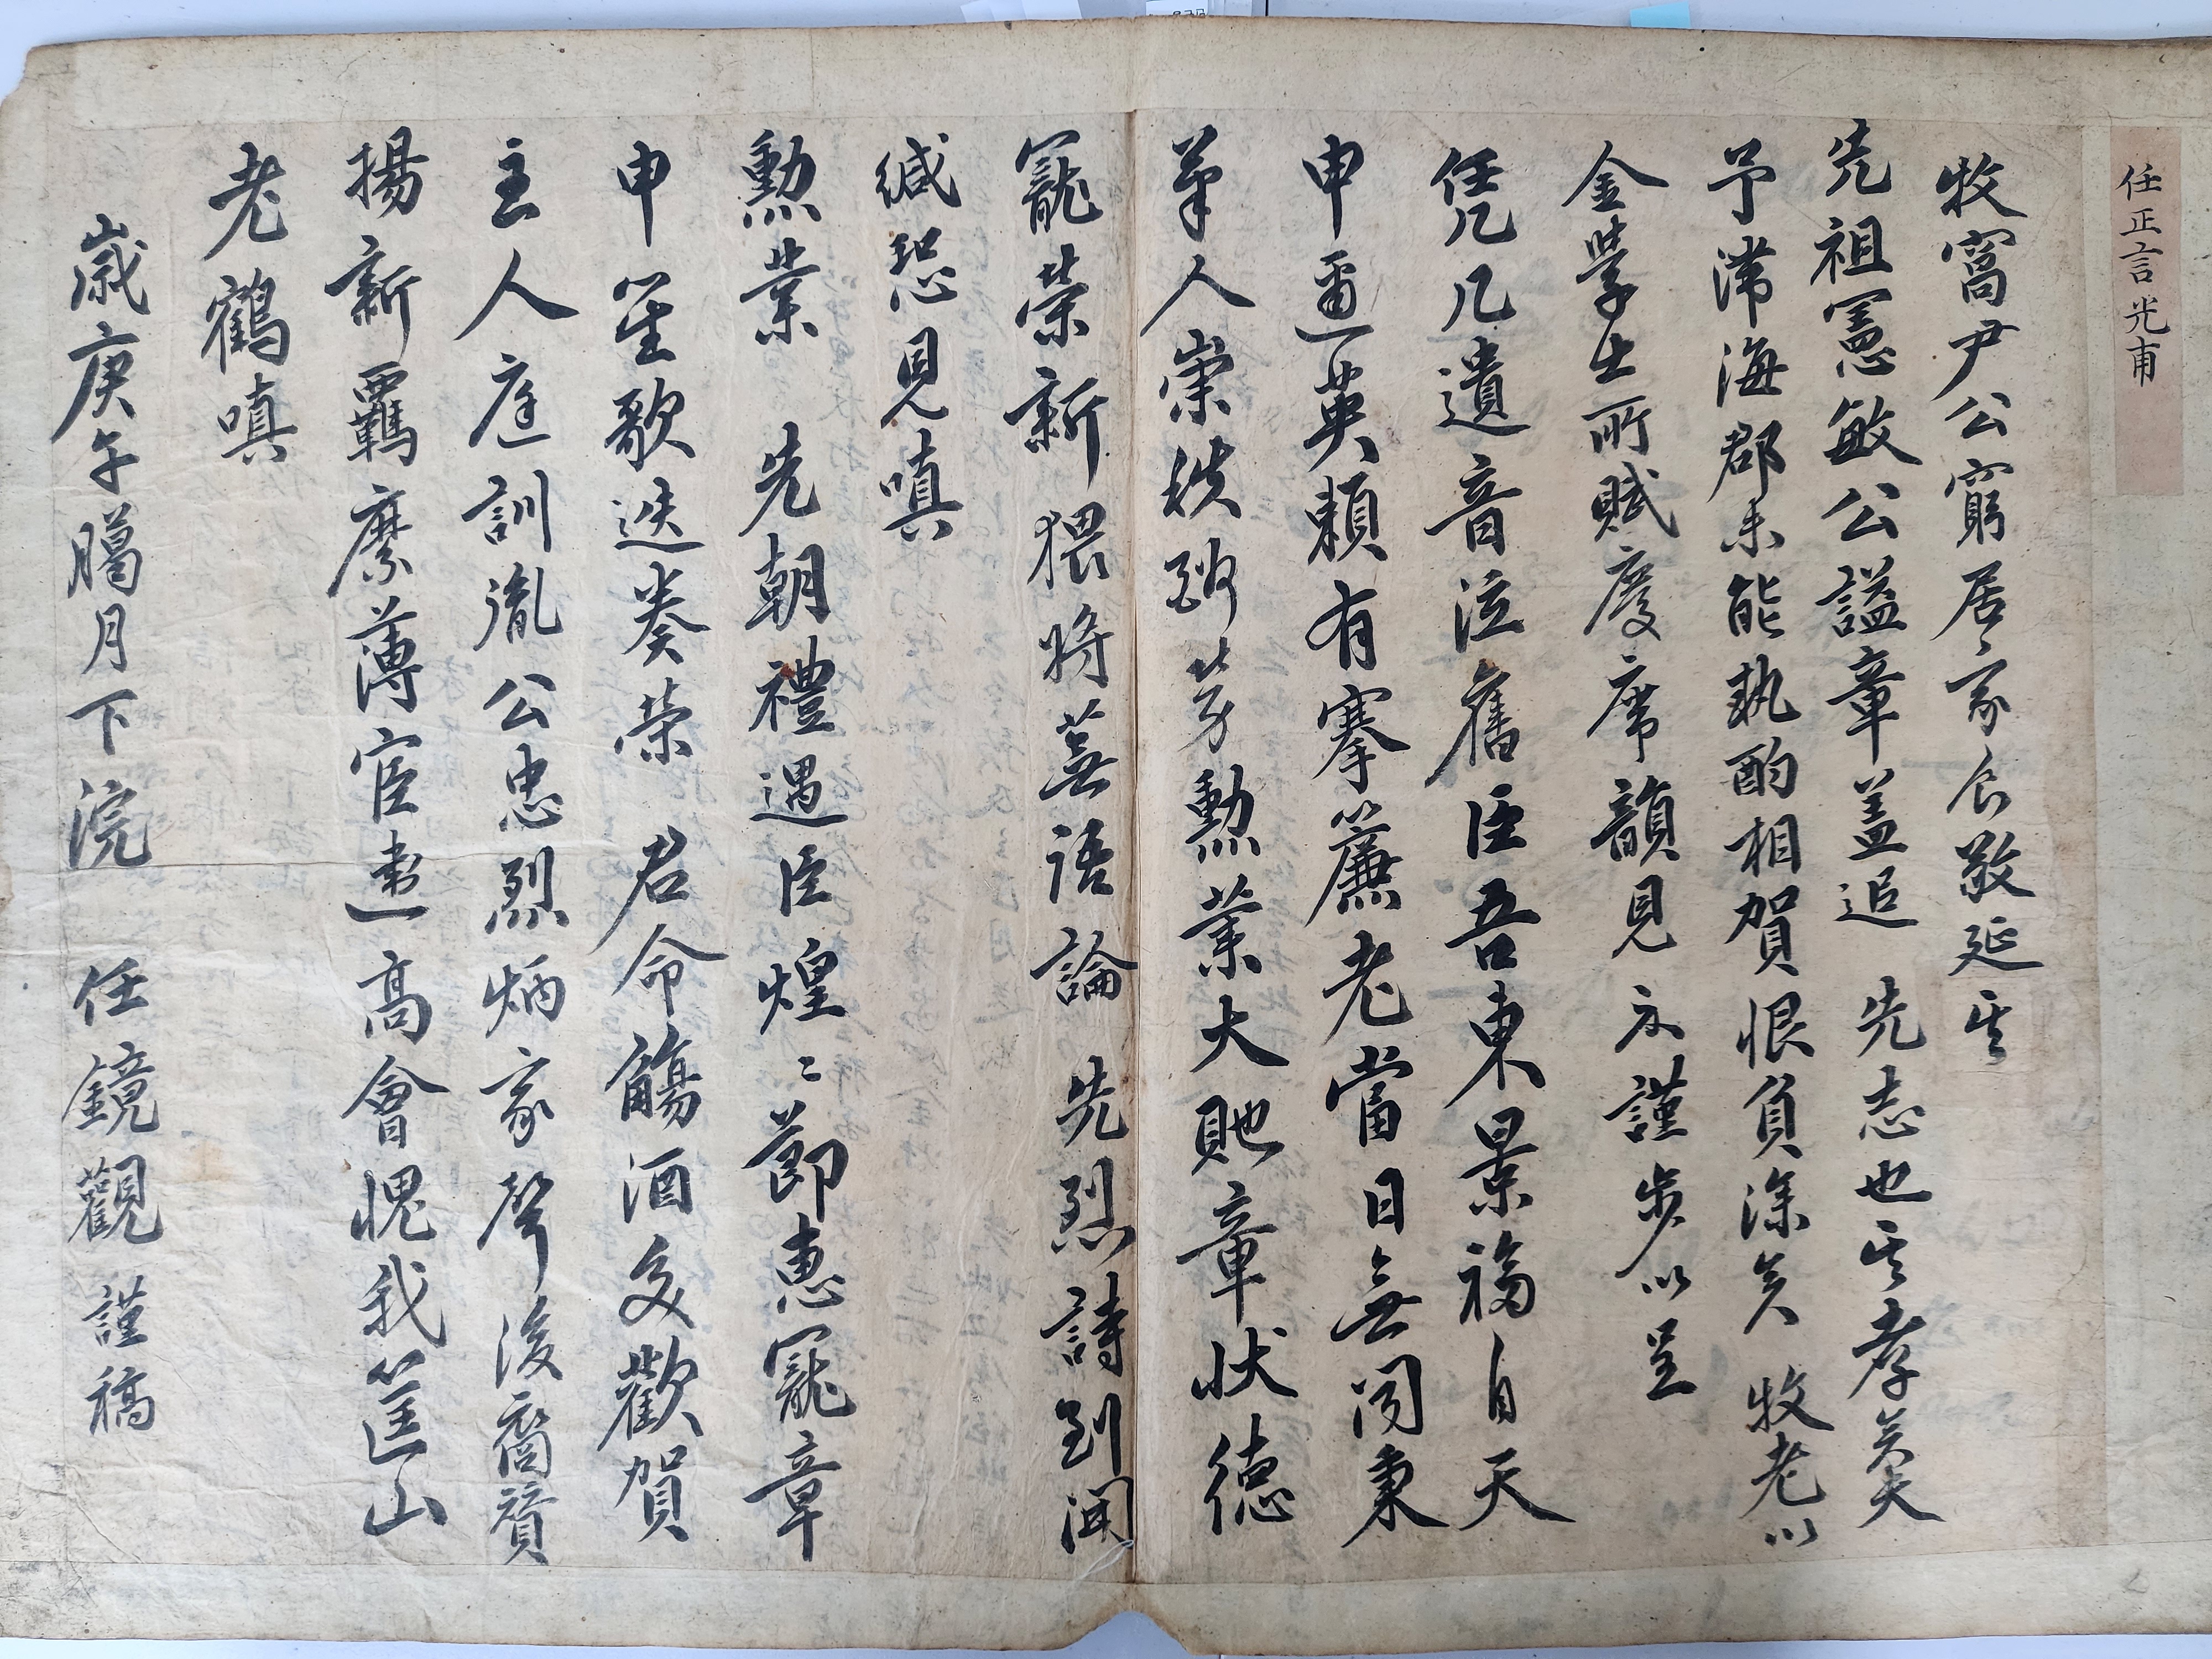 任正言光甫
牧窩尹公窮居家食敬延其
先祖憲敏公諡章盖追 先志也其孝矣夫
予滯海郡未能執酌相賀恨負深矣 牧老以
金學士所賦慶席韻見示謹步以呈
凭几遺音泣舊臣吾東景福自天
申 英賴有搴簾老當日無聞秉
筆人崇秩 芳勲業大貤章狀德
寵榮新猥將蕪語論 先烈詩到開
緘恐見嗔
勲業 先朝禮遇臣煌〻節惠寵章
申笙歌迭奏榮 君命觴酒交歡賀
主人庭訓胤公忠烈炳家聲後裔贊
揚新羈縻薄宦違高會愧我匡山
老鶴嗔
歲庚午臈月下浣 任鏡觀 謹稿